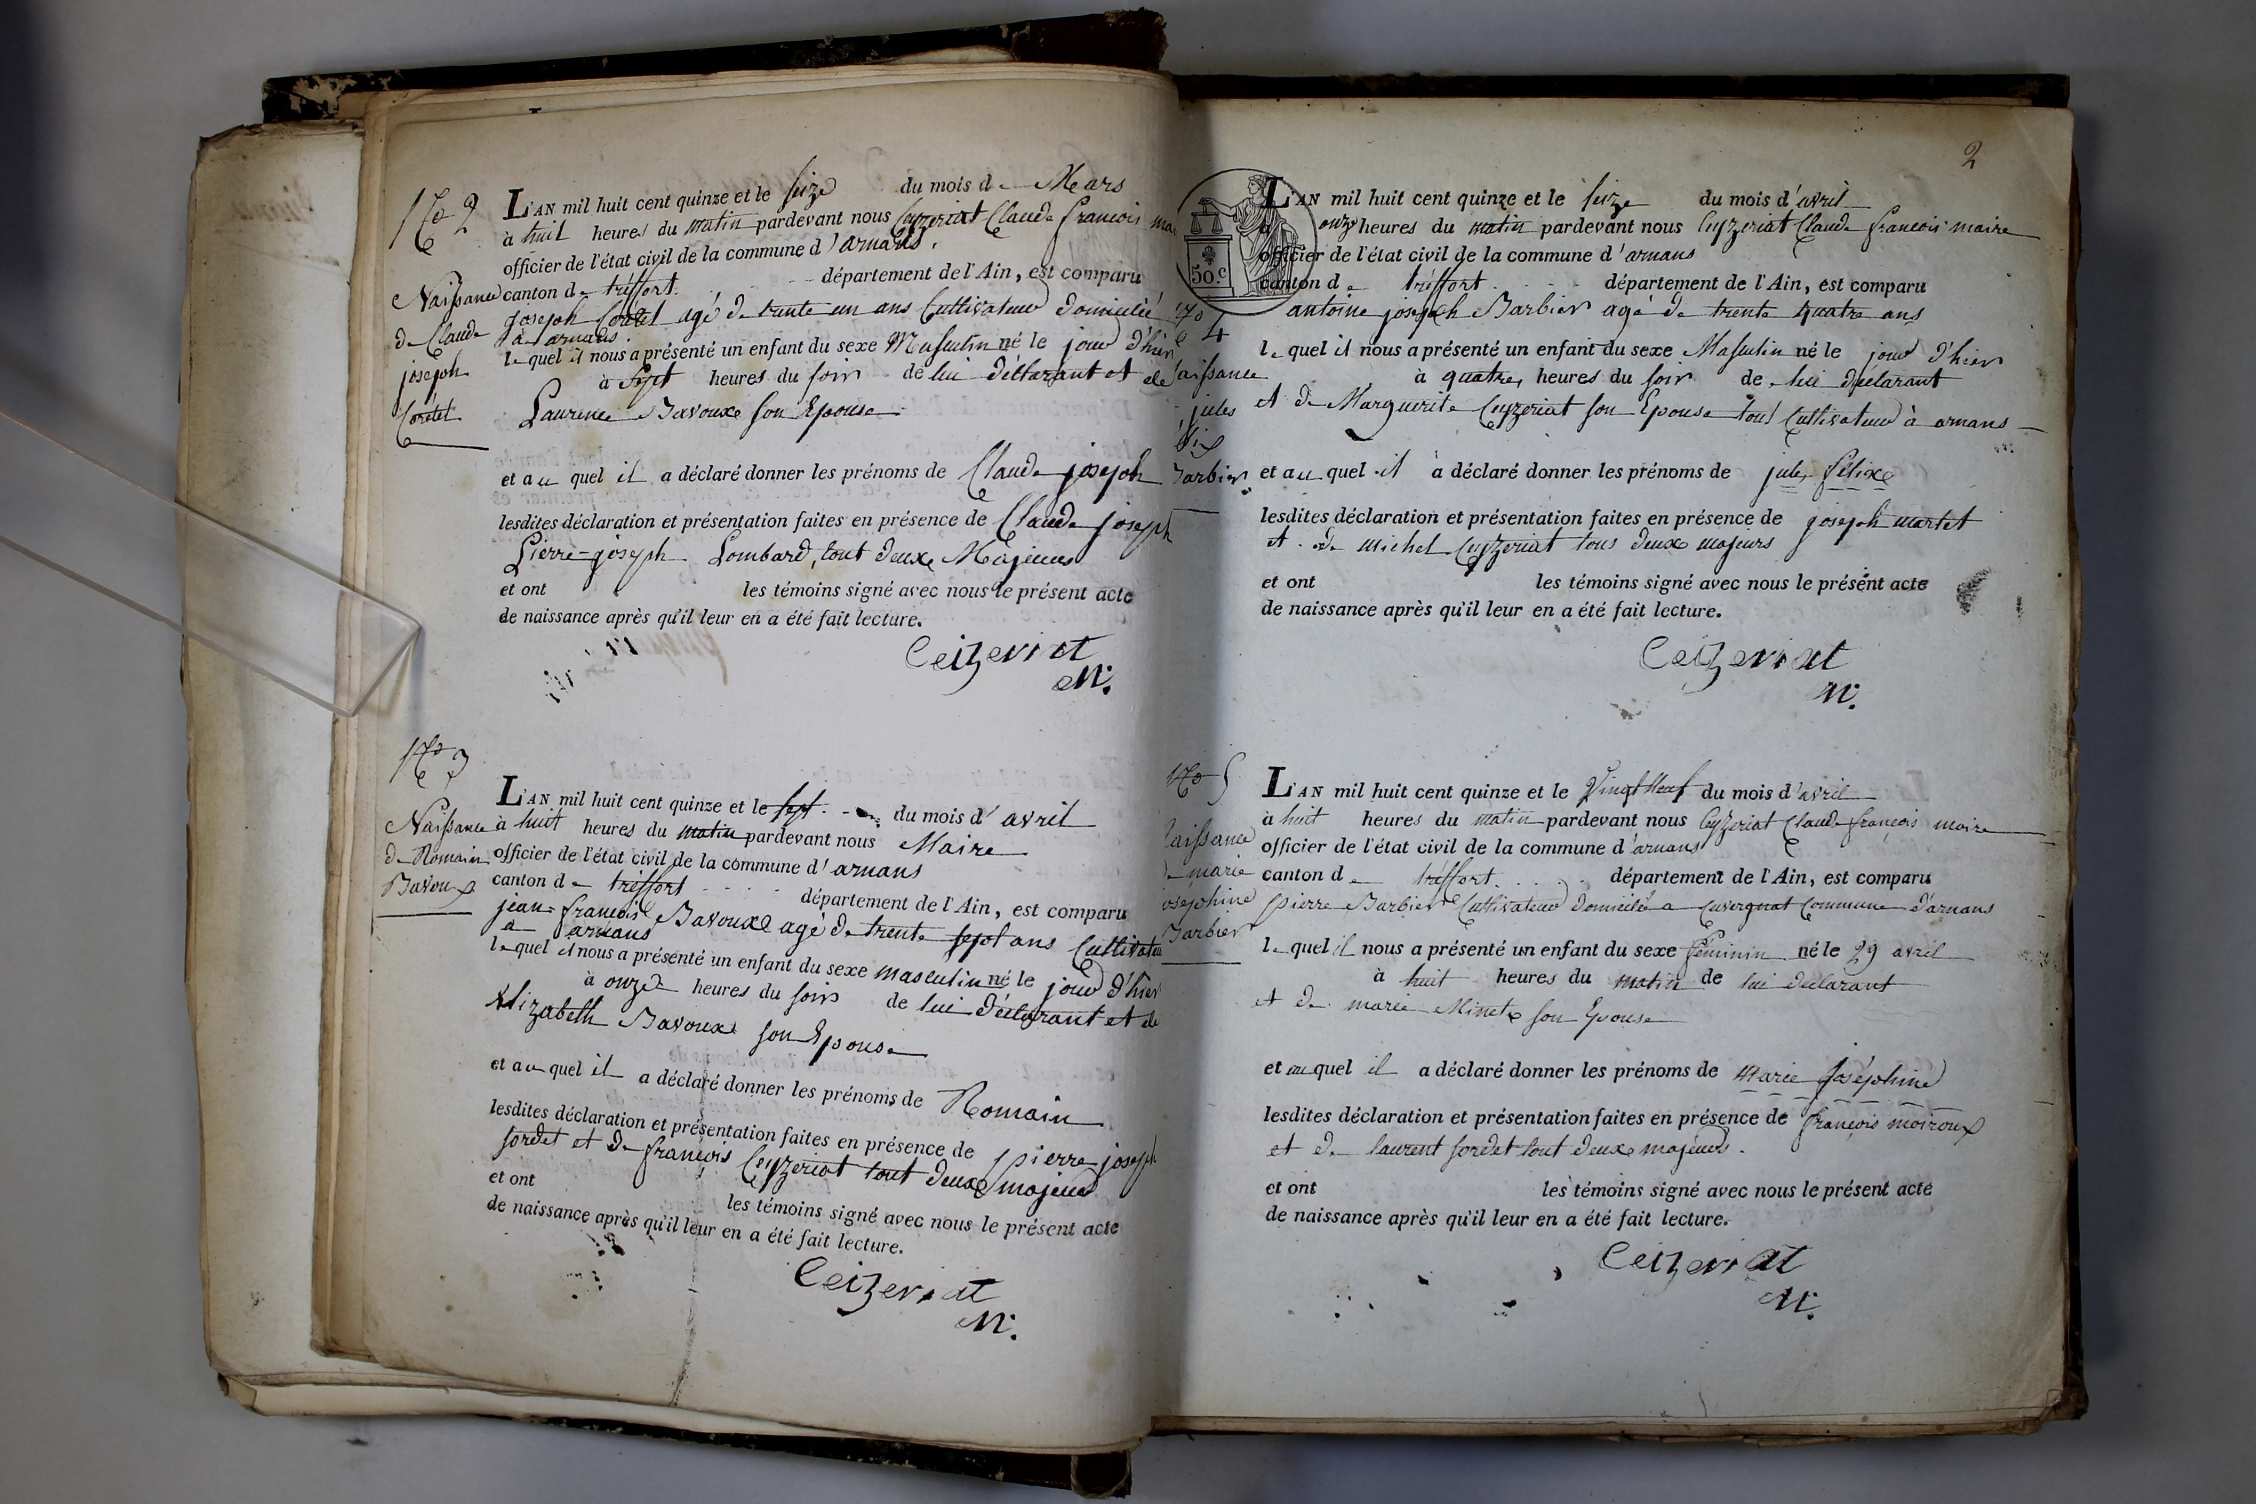 No 2
Naissance
de Claude
joseph
Cordet
L'AN mil huit cent quinze et le seize du mois de Mars
à huit heures du matin pardevant nous Ceyzeriat Claude françois
officier de l'état civil de la commune d'arnans
canton de tréffort département de l'Ain, est comparu
joseph agé de trente un ans Cultivateur domicilié
à arnans
lequel il nous a présenté un enfant du sexe Masculin né le jour d'hier
à Sept heures du soir de lui déclarant et de
Laurence Bavoux son Epouse
et au quel il a déclaré donner les prénoms de Claude joseph
lesdites déclaration et présentation faites en présence de Claude joseph
Pierre-joseph Lombard, tout deux Majeurs
et ont les témoins signé avec nous le présent acte
de naissance après qu'il leur en a été fait lecture.
Ceizeriat
M.
No 3
Naissance
de Romain
Bavoux
L'AN mil huit cent quinze et le sept du mois d'avril
à huit heures du matin pardevant nous Maire
officier de l'état civil de la commune d'arnans
canton de tréffort département de l'Ain, est comparu
jean-françois Bavoux agé de trente sept ans Cultivateu
a arnans
lequel il nous a présenté un enfant du sexe masculin né le jour d'hier
à onze heures du soir de lui déclarant et de
Elizabeth Bavoux son Epouse
et au quel il a déclaré donner les prénoms de Romain
lesdites déclaration et présentation faites en présence de pierre joseph
sordet et de françois Ceyzeriat tout deux majeurs
et ont les témoins signé avec nous le présent acte
de naissance après qu'il leur en a été fait lecture.
Ceizeriat
M.
2
50.c
No 4
aissance
jules
Barbier
L'AN mil huit cent quinze et le seize du mois d'avril
à onze heures du matin pardevant nous Ceyzeriat Claude françois maire
officier de l'état civil de la commune d'arnans
canton de tréffort département de l'Ain, est comparu
antoine joseph Barbier agé de trente quatre ans
lequel il nous a présenté un enfant du sexe Masculin né le jour d'hier
à quatre heures du soir de lui déclarant
et de Marguerite Ceyzeriat son Epouse tous Cultivateur à arnans
et au quel il a déclaré donner les prénoms de jules félix
lesdites déclaration et présentation faites en présence de joseph martet
et de michel Ceyzeriat tous deux majeurs
et ont les témoins signé avec nous le présent acte
de naissance après qu'il leur en a été fait lecture.
Ceizeriat
M.
No 5
aissance
de marie
josephine
Barbier
L'AN mil huit cent quinze et le Vingt Neuf du mois d'avril
à huit heures du matin pardevant nous Ceyzeriat Claude françois maire
officier de l'état civil de la commune d'arnans
canton de tréffort département de l'Ain, est comparu
pierre Barbier Cultivateur domicilé a Cuvergnat Commune d'arnans
lequel il nous a présenté un enfant du sexe féminin né le 29 avril
à huit heures du matin de lui déclarant
et de marie Minet son Epouse
et au quel il a déclaré donner les prénoms de Marie joséphine
lesdites déclaration et présentation faites en présence de françois moiroux
et de laurent sordet tout deux majeurs.
et ont les témoins signé avec nous le présent acte
de naissance après qu'il leur en a été fait lecture.
Ceizeriat
M.